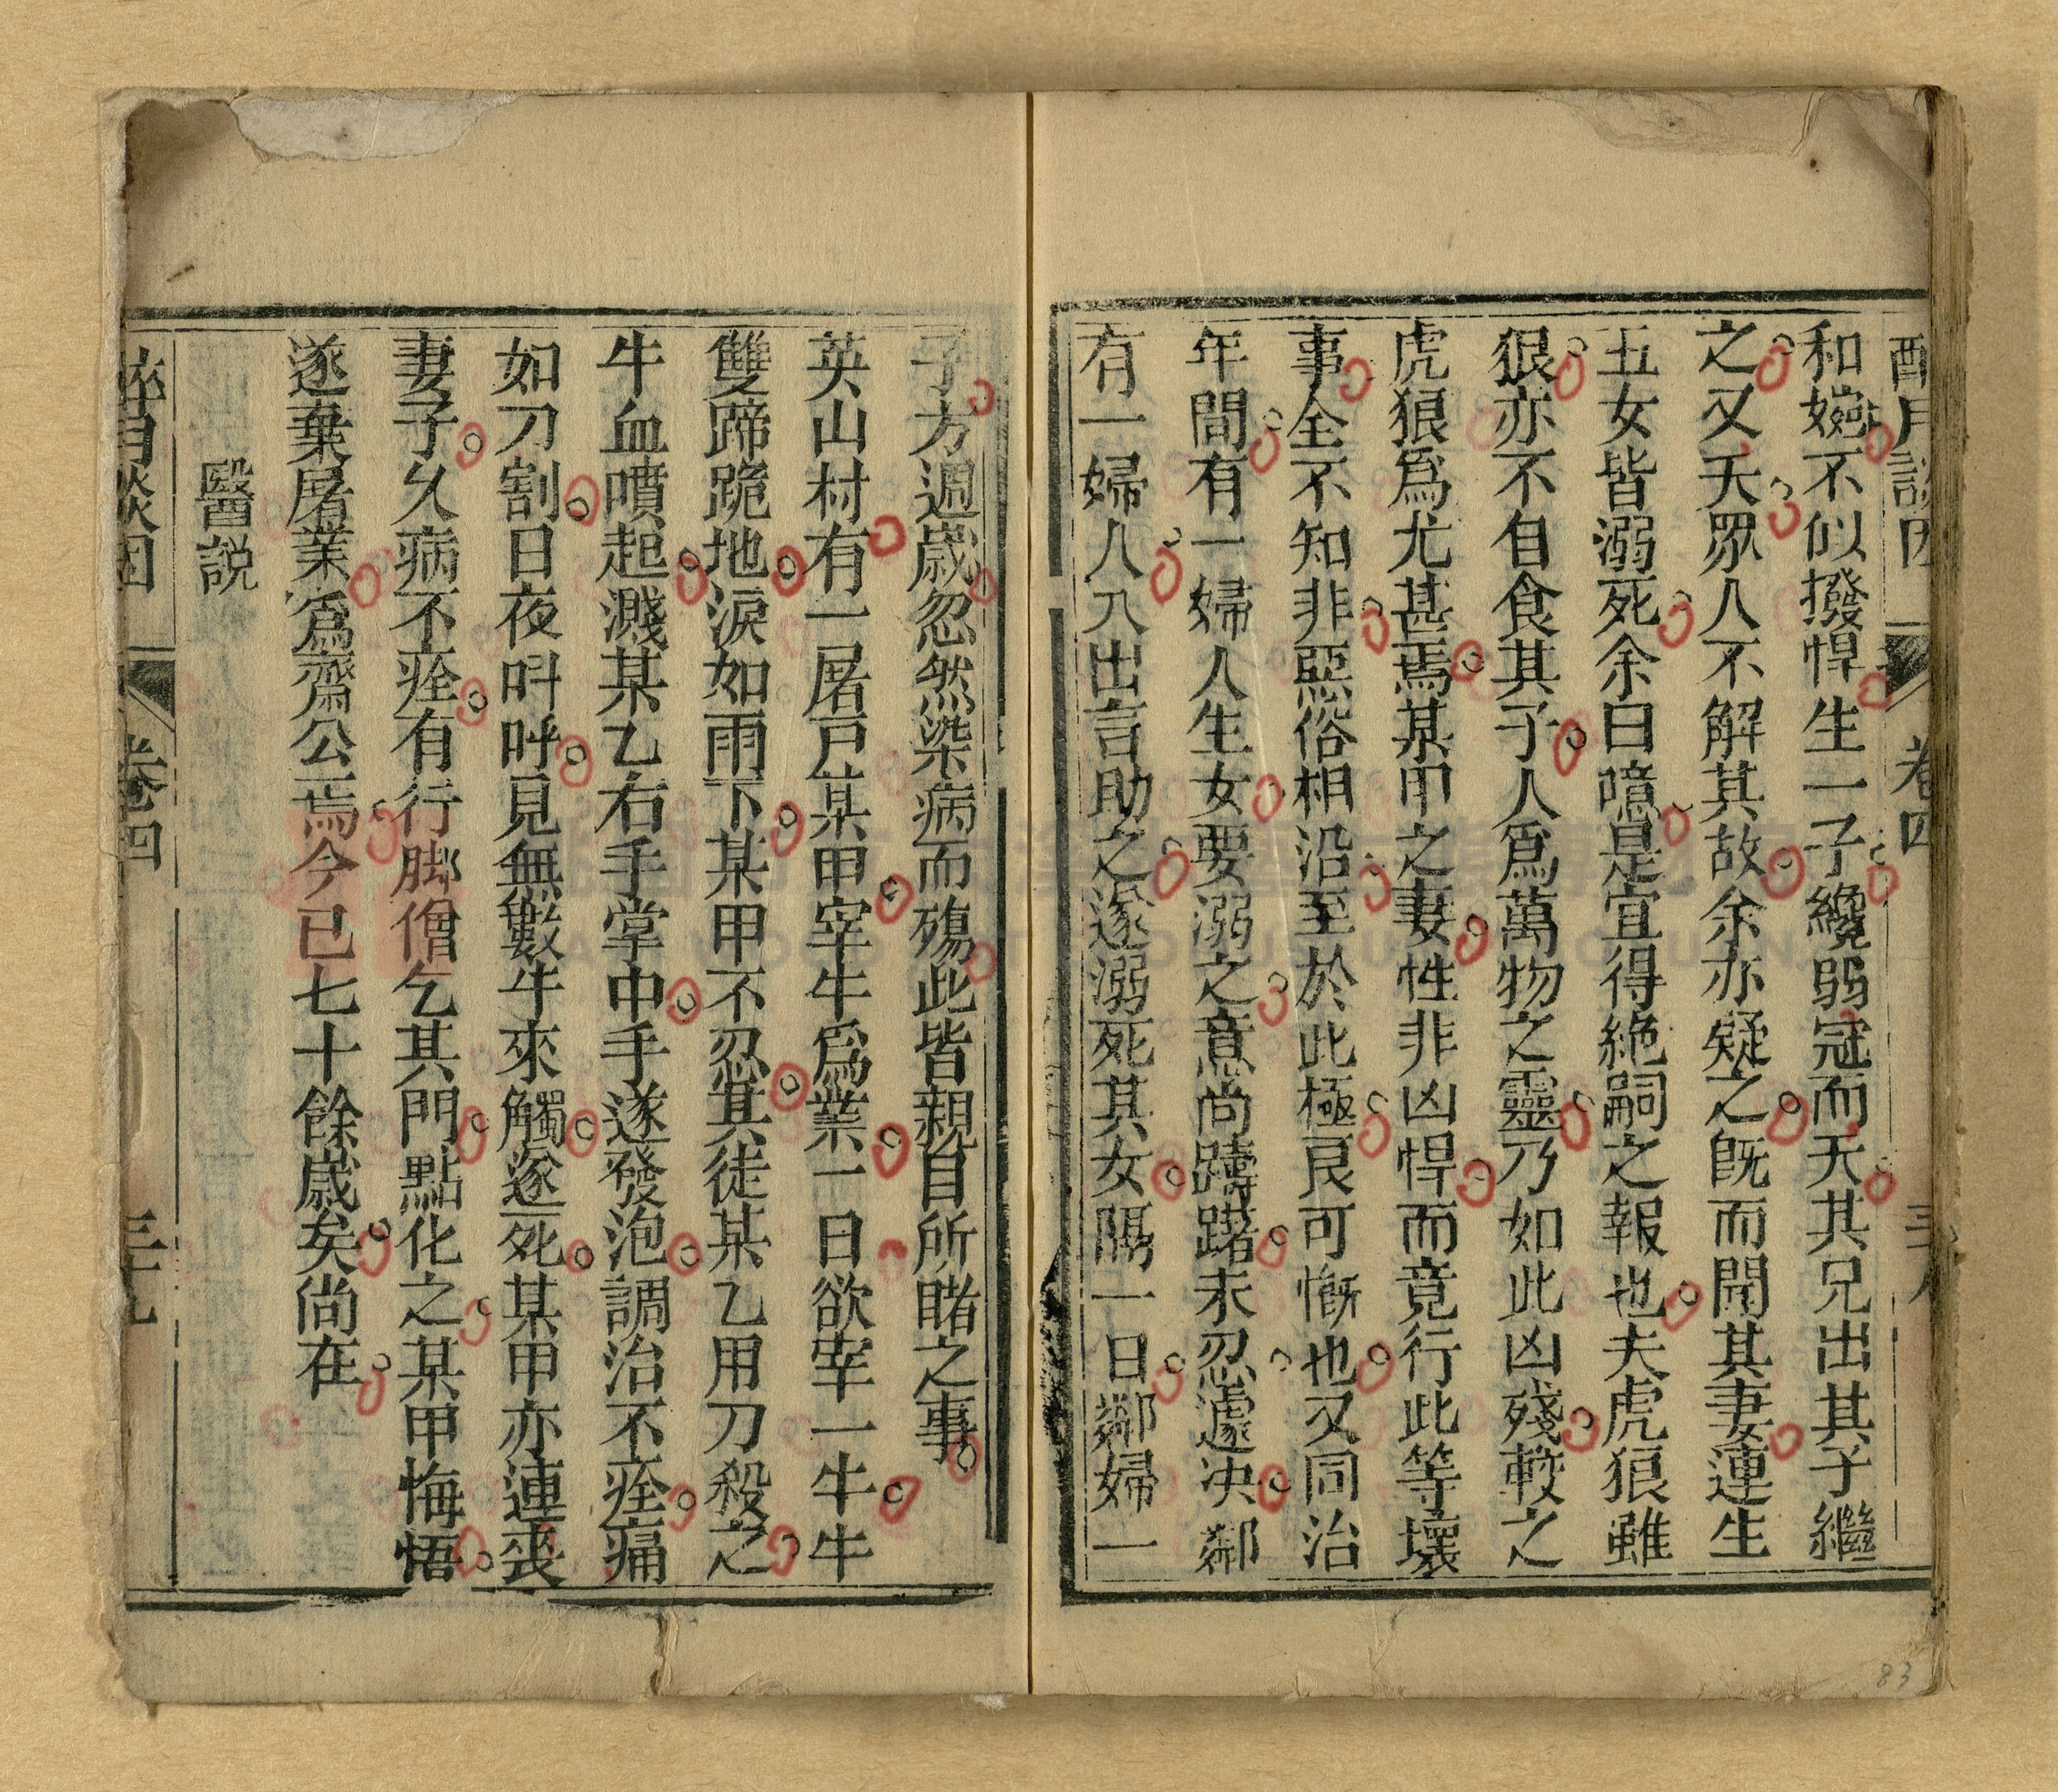 卷四
和㜻不似撥悍生一子纔弱冠而夭其兄出其子繼
之又夭眾人不解其故余亦疑之既而聞其妻連生
五女皆溺死余曰噫是宜得絶嗣之報也夫虎狼雖
狠亦不自食其子人爲萬物之靈乃如此凶殘較之
虎狼爲尤甚焉某甲之妻性非凶悍而竟行此等壞
事全不知非惡俗相沿至於此極良可慨也又同治
年間有一婦人生女要溺之意尚躊躇未忍遽决鄰
有一婦人入出言助之遂溺死其女隔一日鄰婦一
子方週歲忽然染病而殤此皆親目所睹之事
英山村有一屠戸某甲宰牛爲業一日欲宰一牛牛
雙蹄跪地淚如雨下某甲不忍其徒某乙用刀殺之
牛血噴起濺某乙右手掌中手遂發泡調治不痊痛
如刀割日夜呌呼見無數牛來觸遂死某甲亦連喪
妻子久病不痊有行脚僧乞其門點化之某甲悔悟
遂棄屠業爲齋公焉今已七十餘歲矣尚在
醫説
卷四